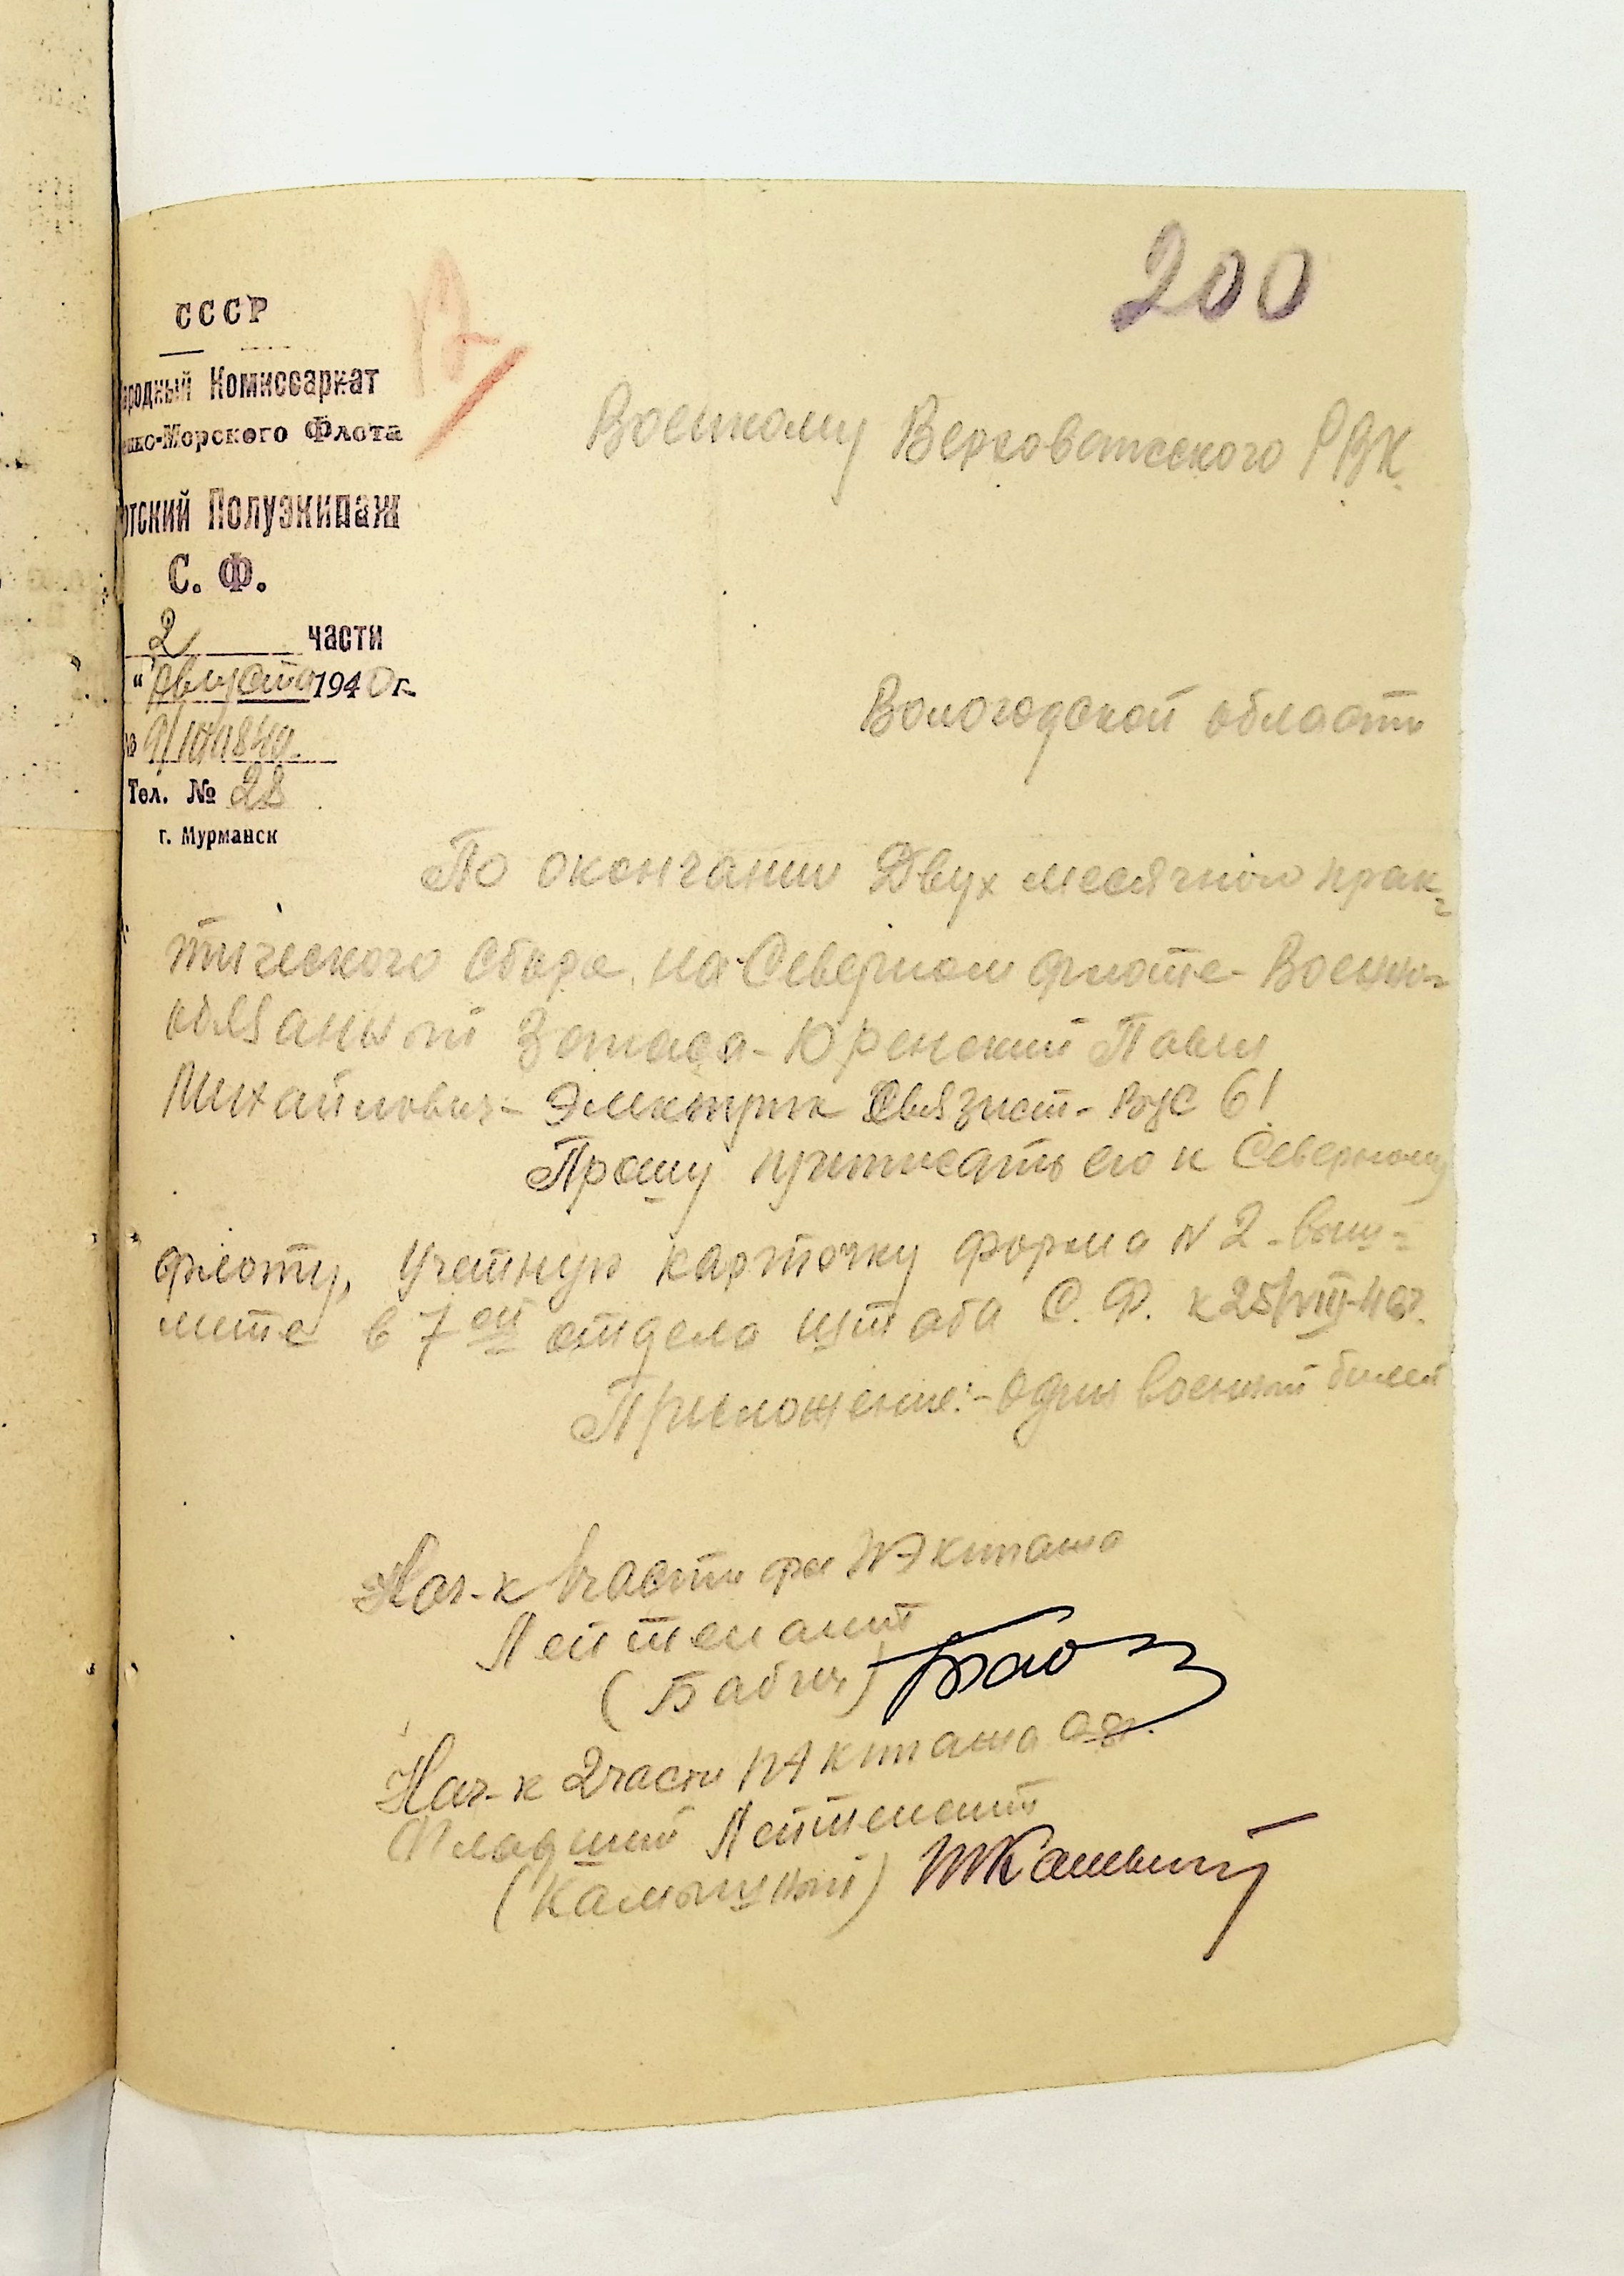 200
СССР
родный Комиссариат
нно-Морского Флота
отский Полуэкипаж
С. Ф.
2 части
" Августа 1940 г.
Тел. № 28
г. Мурманск
Военкому Верховажского РВК.
Вологодской области
По окончании Двух месячного прак-
тического сбора на Северном флоте - Военно-
обязанный Запаса - Юренский Павел
Михайлович - Электрик Связист - Вус 61
Прошу приписать его к Северному
флоту, Учетную карточку форма N 2 - выш-
лите в 7ой отдела штаба С. Ф. к 25/VIII-40г.
Приложение: - Один военный билет
Нач-к части
Лейтенант
(Бабич)
Нач-к 2 части
Младший Лейтенант
(Камышный)